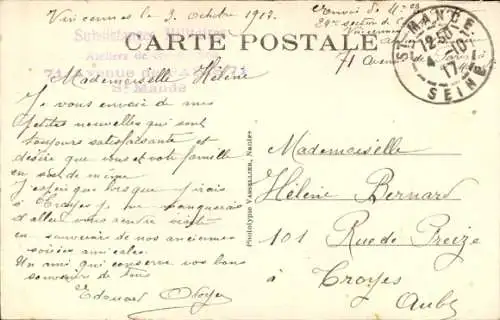 Vincennes le 3 octobre 1917.
Envoi de
24e section de C
Vincennes
71 Avenue de Paris
Subsistances Militaires
Ateliers de
71 Avenue de Paris 71
St Mandé
CARTE POSTALE
ST MANDÉ
12-50
4 -10
17
SEINE
Mademoiselle Hélène
Je vous envoie de mes
petites nouvelles qui sont
toujours satisfaisante et
désire que vous et votre famille
en soit de même
J'espère que lorsque j'irais
à Troyes je ne manquerais
d'aller vous rendre visite
en souvenir de nos anciennes
soirées amicales.
Un ami qui conserve vos bons
souvenirs de tous
Edouard
Phototype Vassellier, Nantes
Mademoiselle
Hélène Bernard
101 Rue de Preize
à Troyes
Aube